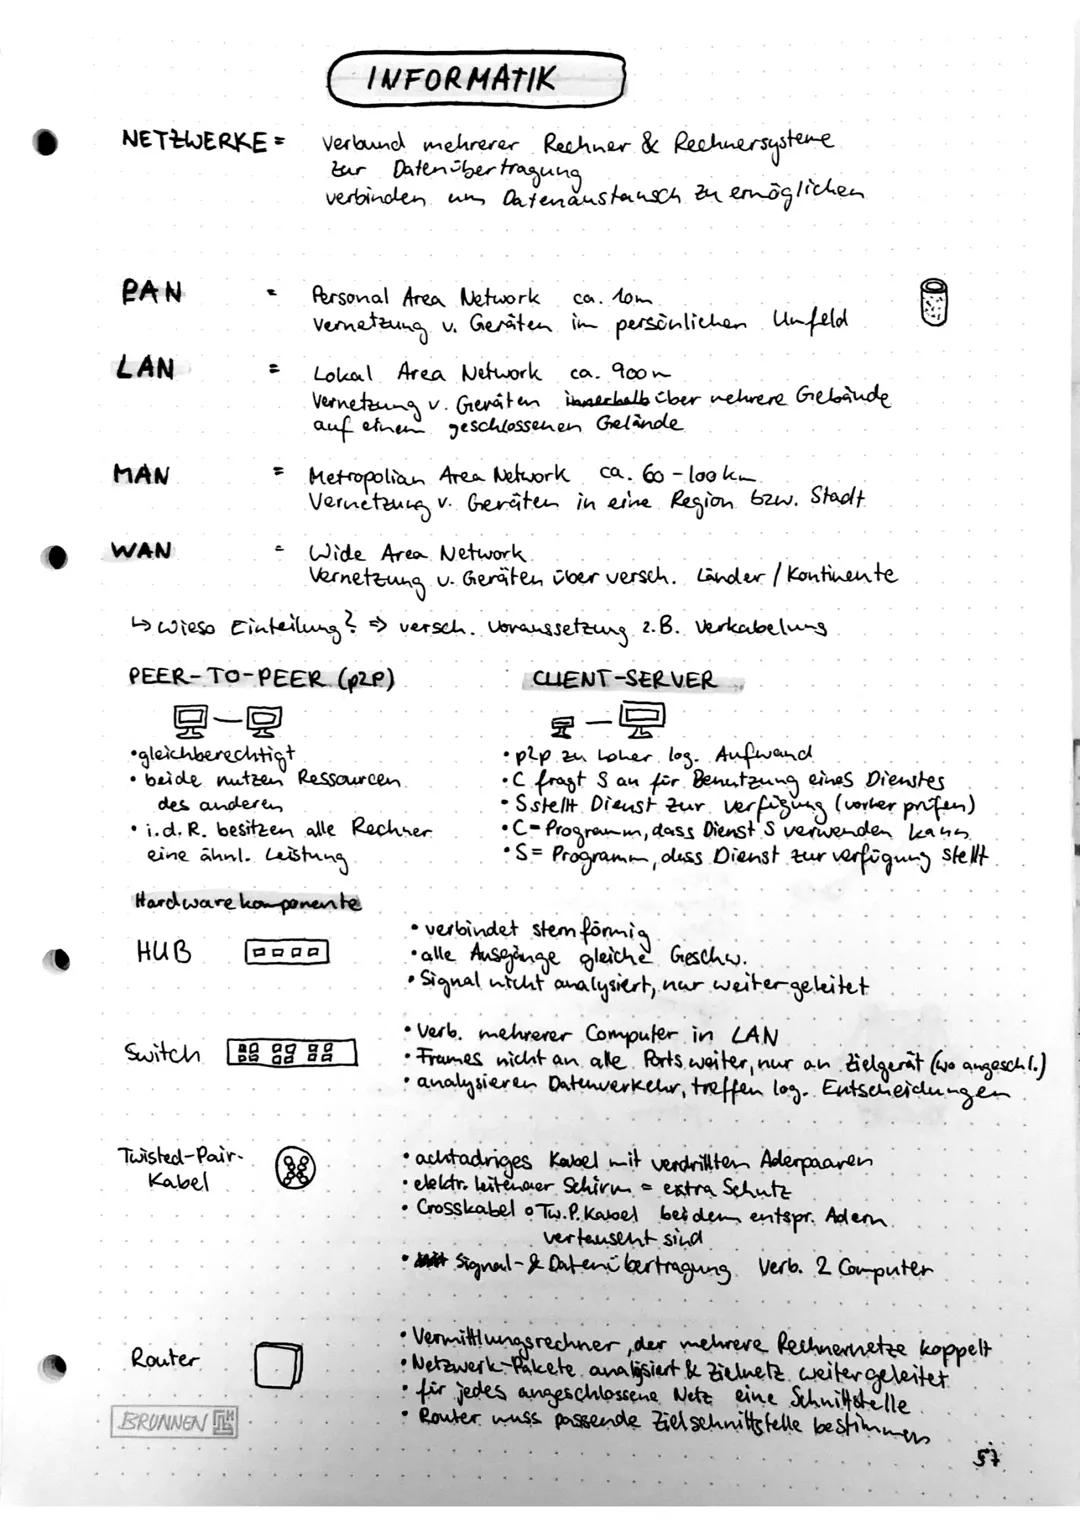 INFORMATIK
NETZWERKE = Verbund mehrerer Rechner & Rechnersysteme
zur Datenübertragung
verbinden um Datenaustausch zu ermöglichen
PAN = Personal Area Network ca. 10m
Vernetzung v. Geräten im persönlichen Umfeld
LAN = Lokal Area Network ca. 900m
Vernetzung v. Geräten innerhalb über mehrere Gebäude
auf einem geschlossenen Gelände
MAN = Metropolian Area Network ca. 60-100km
Vernetzung v. Geräten in eine Region bzw. Stadt
WAN = Wide Area Network
Vernetzung v. Geräten über versch. Länder / Kontinente
↳ Wieso Einteilung? ⇒ versch. Voraussetzung z.B. Verkabelung
PEER-TO-PEER (p2P)
• gleichberechtigt
• beide nutzen Ressourcen
des anderen
• i.d.R. besitzen alle Rechner
eine ähnl. Leistung
CLIENT-SERVER
• p2p zu hoher log. Aufwand
• C fragt S an für Benutzung eines Dienstes
• S stellt Dienst zur Verfügung (vorher prüfen)
• C = Programm, dass Dienst S verwenden kann
• S = Programm, dass Dienst zur verfügung stellt
Hardwarekomponente
HUB
• verbindet sternförmig
• alle Ausgänge gleiche Geschw.
• Signal nicht analysiert, nur weitergeleitet
Switch
• Verb. mehrerer Computer in LAN
• Frames nicht an alle Ports weiter, nur an Zielgerät (wo angeschl.)
• analysieren Datenverkehr, treffen log. Entscheidungen
Twisted-Pair-
Kabel
• achtadriges Kabel mit verdrillten Aderpaaren
• elektr. leitender Schirm = extra Schutz
• Crosskabel Tw.P. Kabel bei dem entspr. Adern
vertauscht sind
• Signal- & Datenübertragung Verb. 2 Computer
Router
• Vermittlungsrechner, der mehrere Rechnernetze koppelt
• Netzwerk-Pakete analysiert & Zielnetz weitergeleitet
• für jedes angeschlossene Netz eine Schnittstelle
• Router muss passende Zielschnittstelle bestimmen
BRUNNEN
57